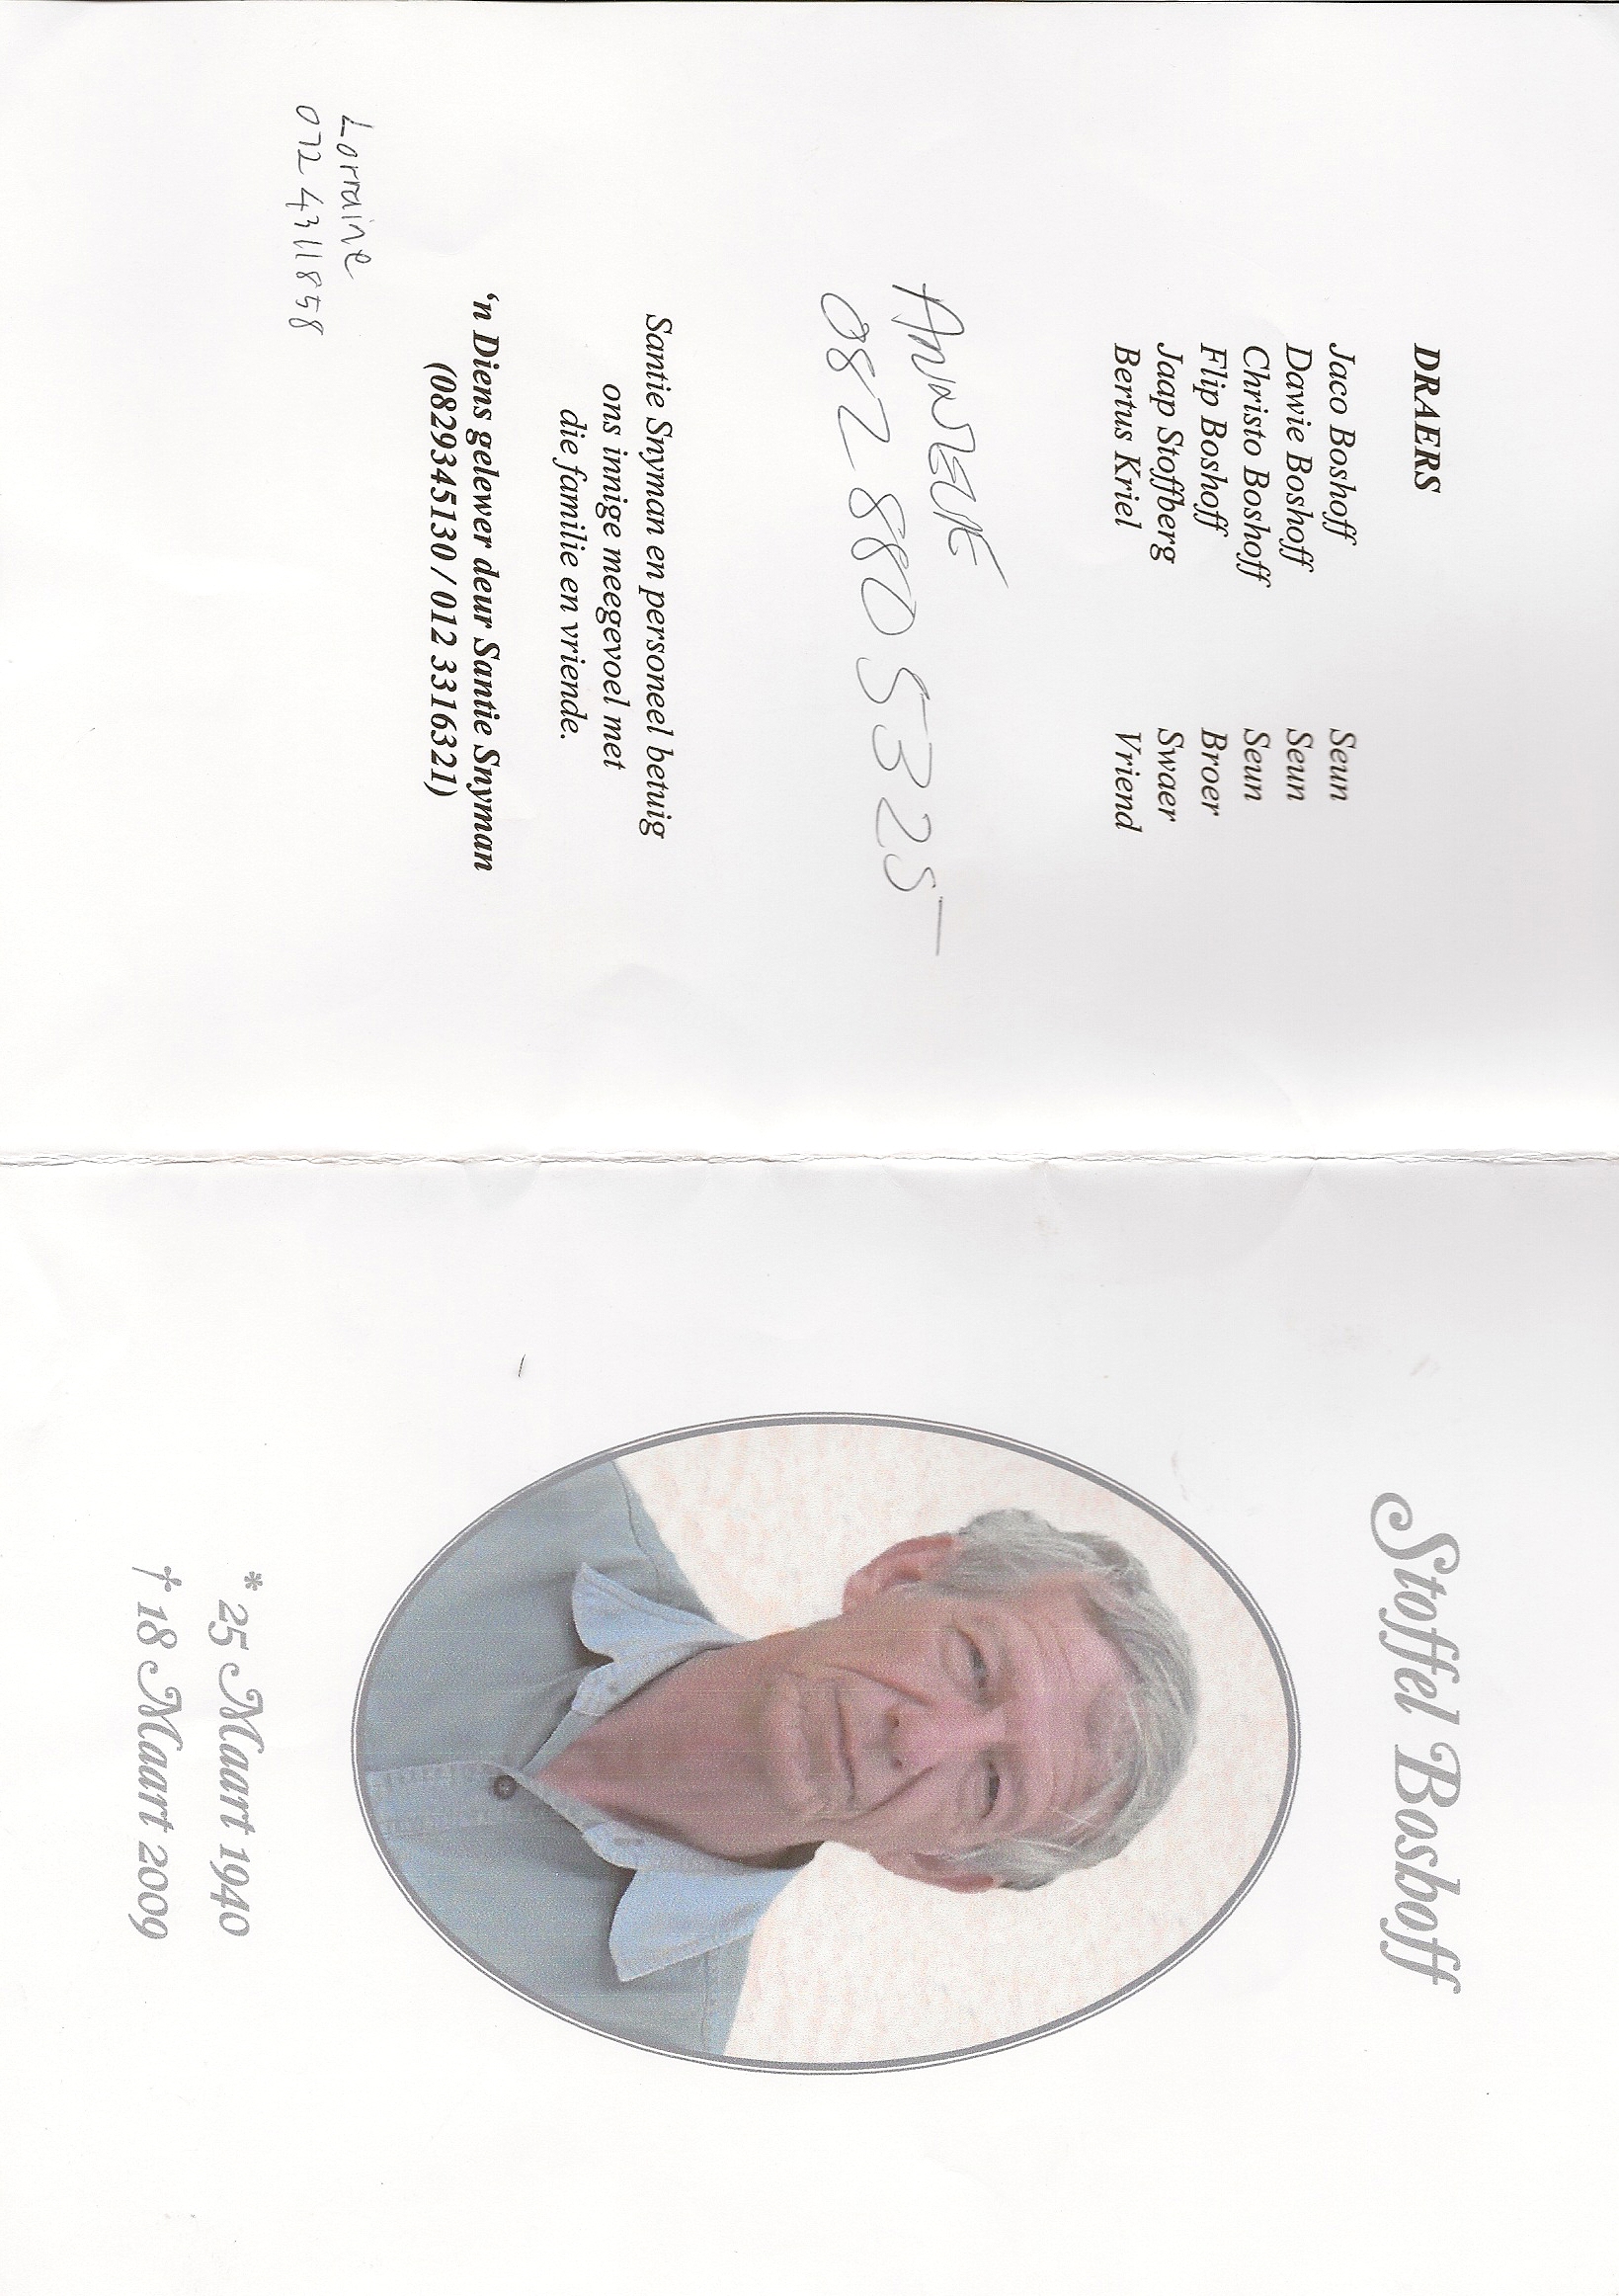 DRAERS
Jaco Boshoff Seun
Dawie Boshoff Seun
Christo Boshoff Seun
Flip Boshoff Broer
Jaap Stoffberg Swaer
Bertus Kriel Vriend
082 880 5325
Santie Snyman en personeel betuig
ons innige meegevoel met
die familie en vriende.
‘n Diens gelewer deur Santie Snyman
(0829345130 / 012 3316321)
Lorraine
072 4311858
Stoffel Boshoff
* 25 Maart 1940
† 18 Maart 2009